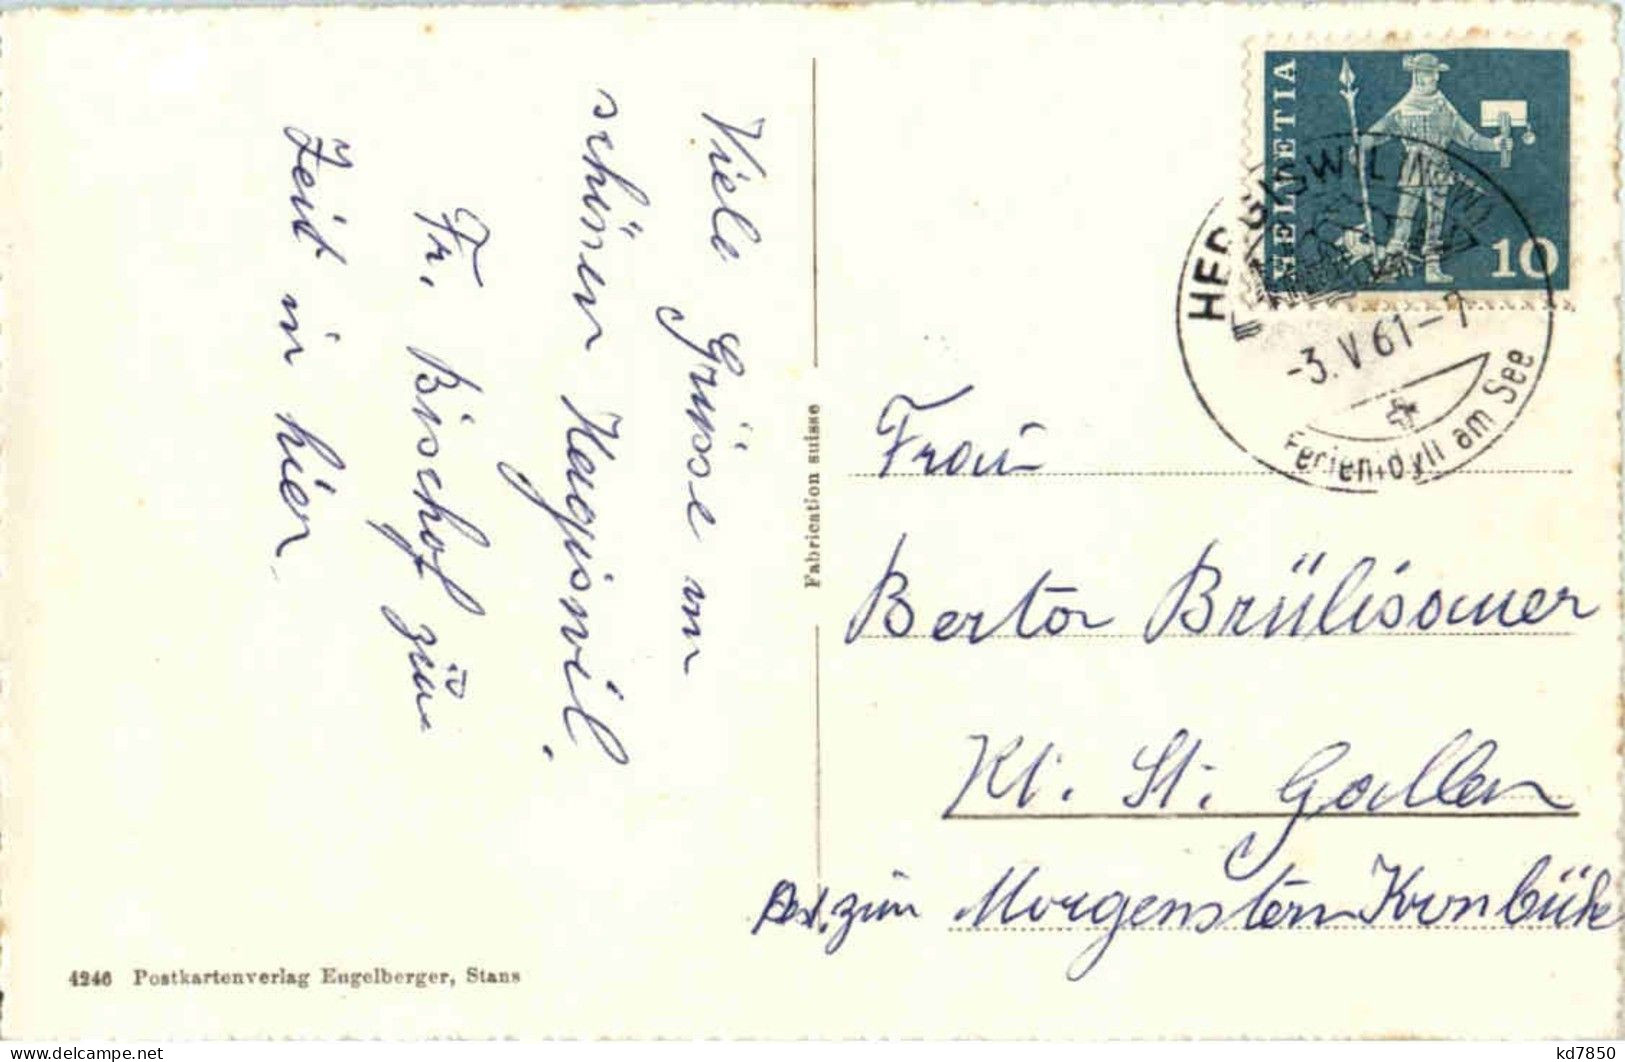 Viele Grüsse vom
schönen Hergiswil.
Fr. Bischof zur
Zeit in hier
Fabrication suisse
4246 Postkartenverlag Engelberger, Stans
HELVETIA
10
HERGISWIL (NIDW.)
-3.V 61-7
Ferienidyll am See
Frau
Berta Brülisauer
Kt. St. Gallen
Rest. zum Morgenstern Kronbühl
delcampe.net
kd7850